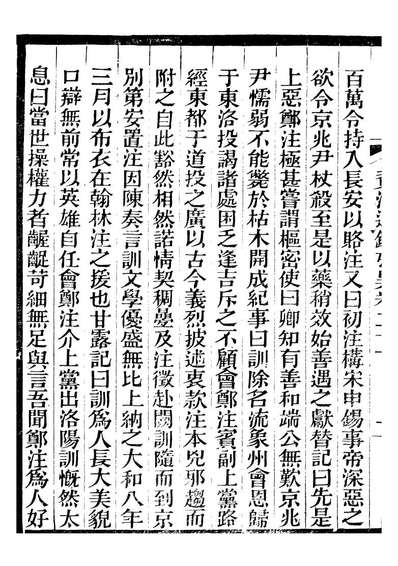 百萬令持人長安以賂注又曰初注構宋申錫事帝深惡之
欲令京兆尹杖殺至是以藥稍效始善遇之獻替記曰先是
上惡鄭注極甚嘗謂樞密使曰卿知有善和端公無歎京兆
尹懦弱不能斃於枯木開成紀事曰訓除名流象州會恩歸
于東洛投謁諸處困乏逢吉斥之不顧會鄭注賓副上黨路
經東都于道投之廣以古今義烈披述衷款注本兇邪趨而
附之自此豁然相然諾情契稠疊及注徵赴闕訓隨而到京
別第安置注因陳奏言訓文學優盛無比上納之大和八年
三月以布衣在翰林注之援也甘露記曰訓爲人長大美貌
口辯無前常以英雄自任會鄭注介上黨出洛陽訓慨然太
息曰當世操權力者齷齪苛細無足與言吾聞鄭注爲人好